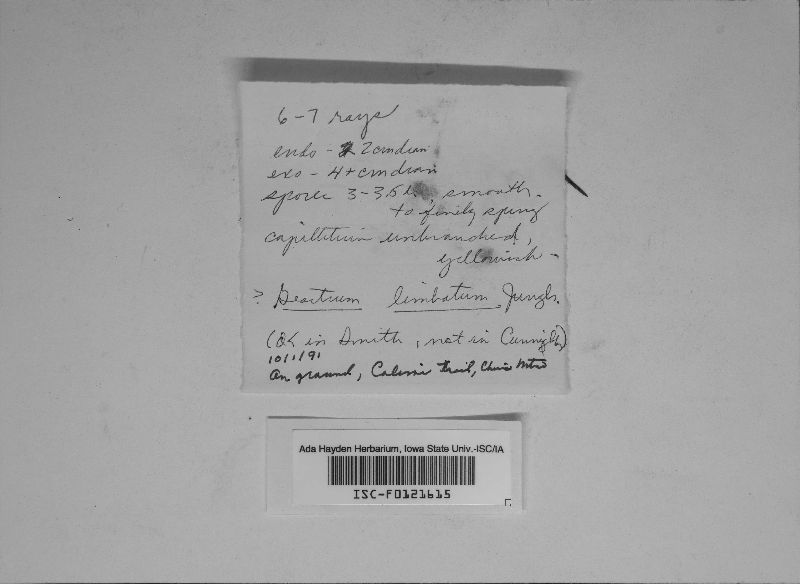 6-7 rays
endo - 2 cm diam
exo - 4+ cm diam
spores 3-3.5 smooth -
to finely spiny
capillitium unbranched,
yellowish -
? Geastrum limbatum Jungh.
(OK in Smith, not in Cunnigh)
10/1/91
On ground, trail,
Ada Hayden Herbarium, Iowa State Univ.-ISC/IA
ISC-F0121615